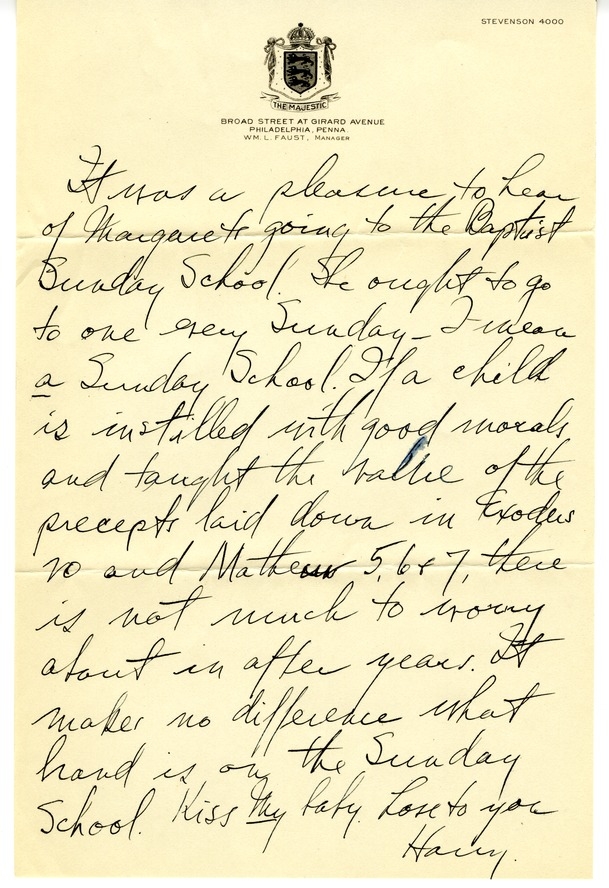 STEVENSON 4000
THE MAJESTIC
BROAD STREET AT GIRARD AVENUE
PHILADELPHIA, PENNA
WM. L. FAUST, MANAGER
It was a pleasure to hear
of Margarets going to the Baptist
Sunday School. She ought to go
to one every Sunday - I mean
a Sunday School. If a child
is instilled with good morals
and taught the value of the
precepts laid down in Exodus
20 and Mathew 5, 6 & 7, there
is not much to worry
about in after years. It
makes no difference what
brand is on the Sunday
School. Kiss My baby. Love to you
Harry.